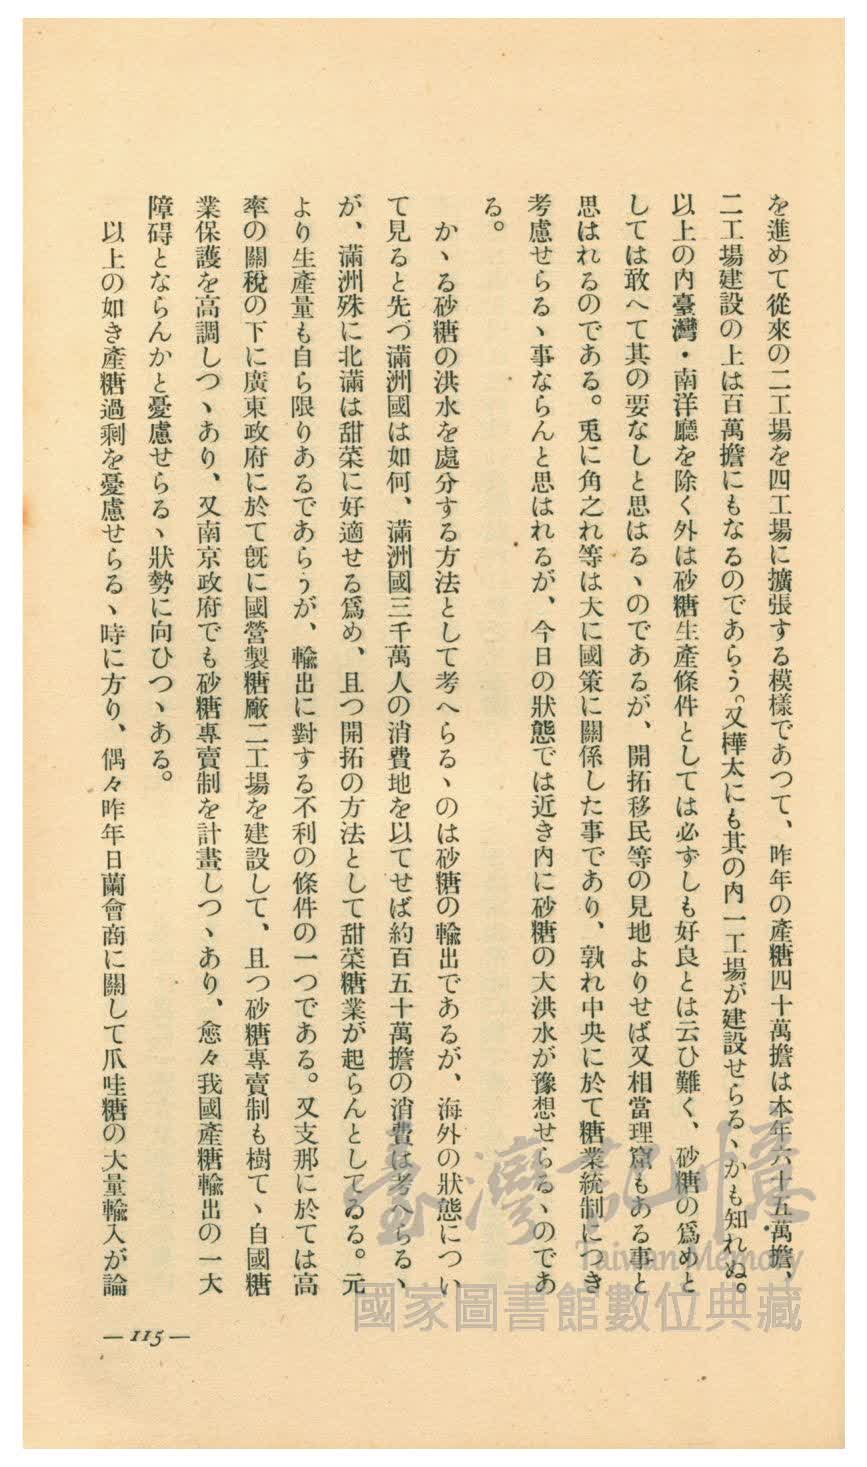 を進めて從來の二工場を四工場に擴張する模樣であつて、昨年の產糖四十萬擔は本年六十五萬擔、
二工場建設の上は百萬擔にもなるのであらう。又樺太にも其の内一工場が建設せらるヽかも知れぬ。
以上の内臺灣・南洋廳を除く外は砂糖生產條件としては必ずしも好良とは云ひ難く、砂糖の爲めと
しては敢へて其の要なしと思はるヽのであるが、開拓移民等の見地よりせば又相當理窟もある事と
思はれるのである。兎に角之れ等は大に國策に關係した事であり、孰れ中央に於て糖業統制につき
考慮せらるヽ事ならんと思はれるが、今日の狀態では近き内に砂糖の大洪水が豫想せらるヽのであ
る。
かヽる砂糖の洪水を處分する方法として考へらるヽのは砂糖の輸出であるが、海外の狀態につい
て見ると先づ滿洲國は如何、滿洲國三千萬人の消費地を以てせば約百五十萬擔の消費は考へらるヽ
が、滿洲殊に北滿は甜菜に好適せる爲め、且つ開拓の方法として甜菜糖業が起らんとしてゐる。元
より生產量も自ら限りあるであらうが、輸出に對する不利の條件の一つである。又支那に於ては高
率の關稅の下に廣東政府に於て旣に國營製糖廠二工場を建設して、且つ砂糖專賣制も樹てヽ自國糖
業保護を高調しつヽあり、又南京政府でも砂糖專賣制を計畫しつヽあり、愈々我國產糖輸出の一大
障碍とならんかと憂慮せらるヽ狀勢に向ひつヽある。
以上の如き產糖過剩を憂慮せらるヽ時に方り、偶々昨年日蘭會商に關して爪哇糖の大量輸入が論
— 115 —
臺灣記憶
Taiwan Memory
國家圖書館數位典藏